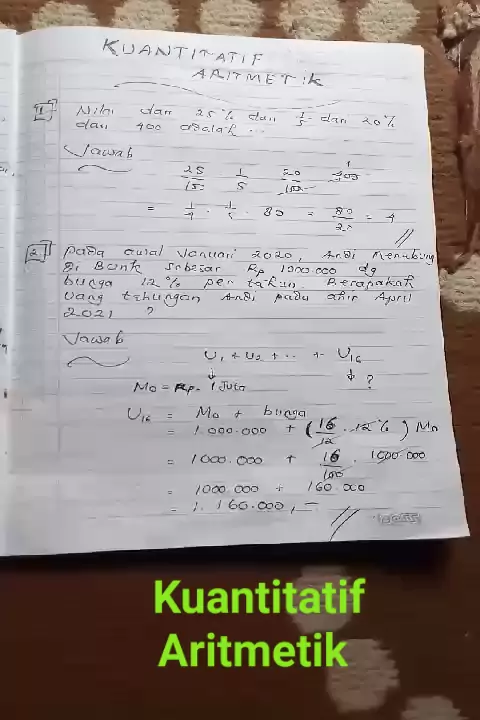 KUANTITATIF
ARITMETIK
1. Nilai dari 25% dari 1/5 dari 20%
dari 400 adalah ...
Jawab
25/100 · 1/5 · 20/100 · 400
= 1/4 · 1/5 · 80 = 80/20 = 4
2. Pada awal Januari 2020, Andi menabung
di Bank sebesar Rp 1000.000 dg
bunga 12% per tahun. Berapakah
uang tabungan Andi pada ahir April
2021 ?
Jawab
U1 + U2 + ... + U16
↓ ↓ ?
M0 = Rp. 1 Juta
U16 = M0 + bunga
= 1.000.000 + (16/12 · 12%) M0
= 1000.000 + 16/100 · 1000.000
= 1000.000 + 160.000
= 1.160.000,=
Kuantitatif
Aritmetik